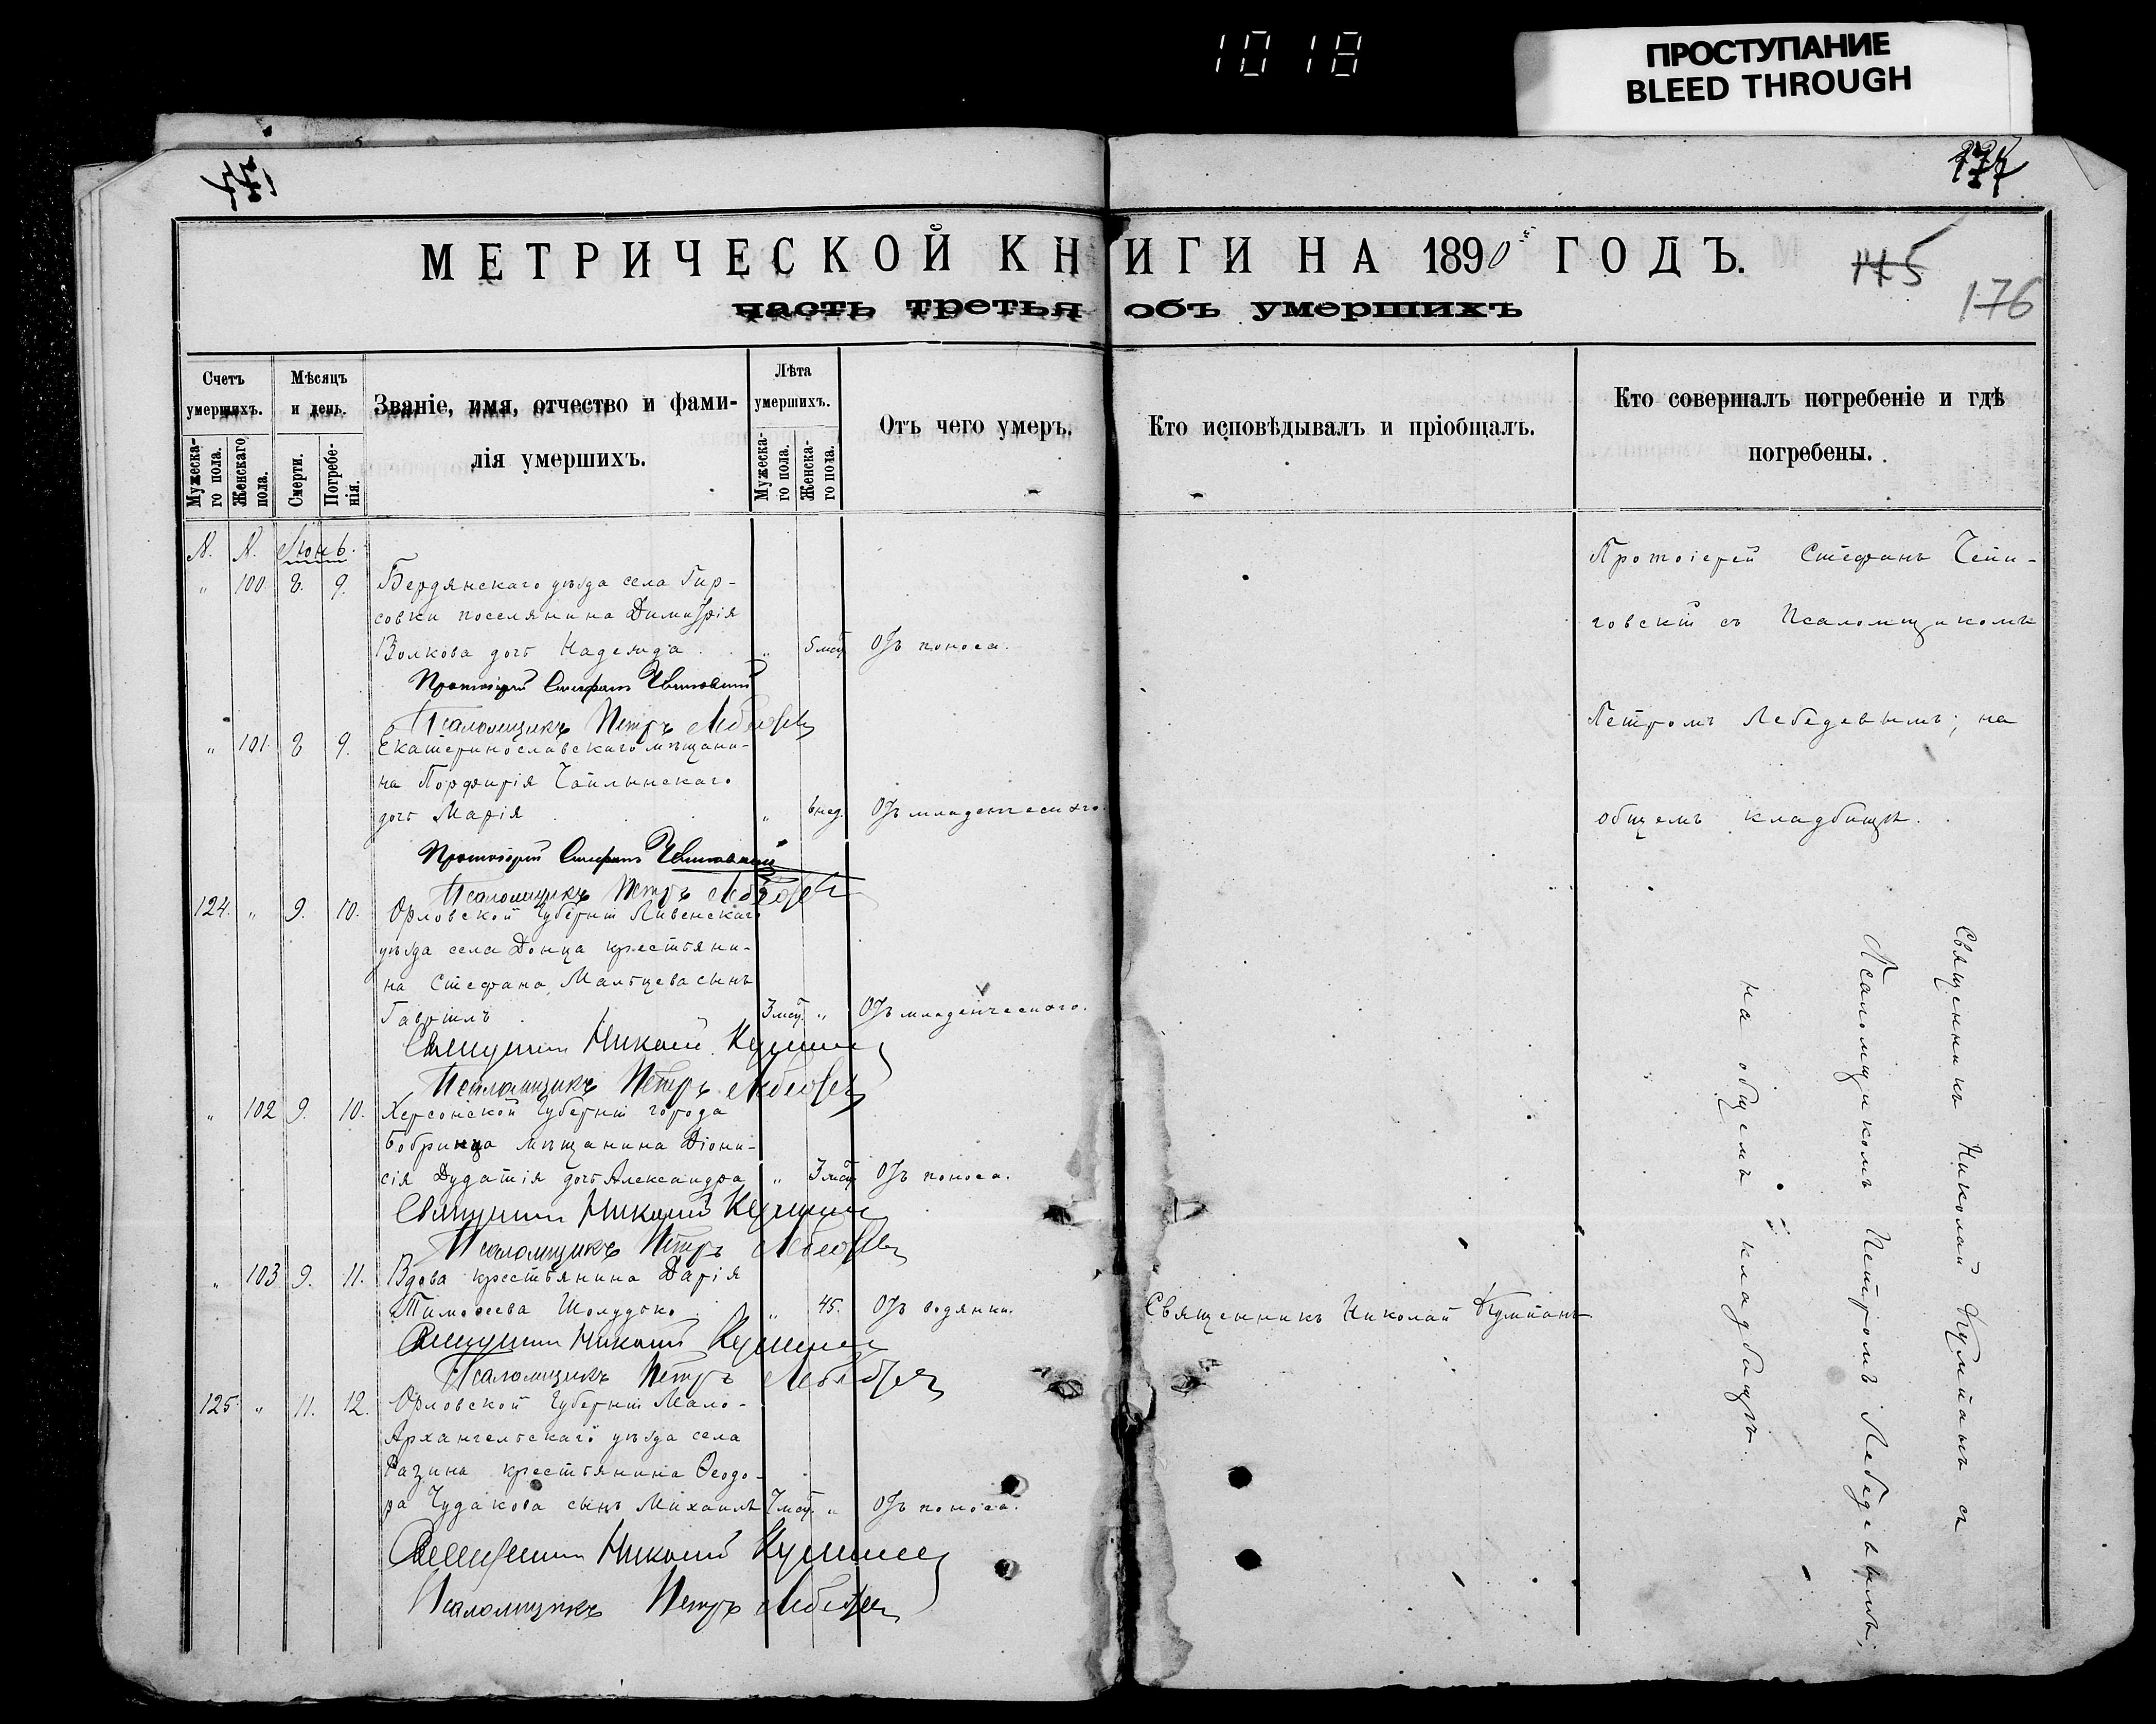 10 18
ПРОСТУПАНИЕ
BLEED THROUGH
177
МЕТРИЧЕСКОЙ КНИГИ НА 1890й ГОДЪ.
часть третья объ умершихъ
145
176
Счетъ умершихъ.
Мужеска-го пола.
Женскаго пола.
Мѣсяцъ и день.
Смерти.
Погребе-нія.
Званіе, имя, отчество и фами-
лія умершихъ.
Лѣта умершихъ.
Мужеска-го пола.
Женска-го пола.
Отъ чего умеръ.
Кто исповѣдывалъ и пріобщалъ.
Кто совершалъ погребеніе и гдѣ
погребены.
№. №. Іюнь.
„ 100. 8. 9. Бердянскаго уѣзда села Гир-
совки поселянина Димитрія
Волкова дочь Надежда . . „ 5 мсц. Отъ поноса.
Протоіерей Стефанъ
Псаломщикъ Петръ Лебедевъ
„ 101. 8 9. Екатеринославскаго мѣщани-
на Порфирія Чаплынскаго
дочь Марія . . „ 6 нед. Отъ младенческаго.
Протоіерей Стефанъ
Псаломщикъ Петръ Лебедевъ
124. „ 9. 10. Орловской Губерніи Ливенскаго
уѣзда села Донца крестьяни-
на Стефана Мальцева сынъ
Гавріилъ . 3 мсц. „ Отъ младенческаго.
Священникъ Николай Кумпанъ
Псаломщикъ Петръ Лебедевъ
„ 102 9. 10. Херсонской Губерніи города
Бобринца мѣщанина Діони-
сія дочь Александра „ 3 мсц. Отъ поноса.
Священникъ Николай Кумпанъ
Псаломщикъ Петръ Лебедевъ
„ 103 9. 11. Вдова крестьянина Дарія
Тимоѳеева Шолудько . „ 45. Отъ водянки. Священникъ Николай Кумпанъ
Священникъ Николай Кумпанъ
Псаломщикъ Петръ Лебедевъ
125. „ 11. 12. Орловской Губерніи Мало-
Архангельскаго уѣзда села
крестьянина Ѳеодо-
ра Чудакова сынъ Михаилъ 7 мсц. „ Отъ поноса.
Священникъ Николай Кумпанъ
Псаломщикъ Петръ Лебедевъ
Протоіерей Стефанъ
съ Псаломщикомъ
Петромъ Лебедевымъ; на
общемъ кладбищѣ.
Священникъ Николай Кумпанъ съ
Псаломщикомъ Петромъ Лебедевымъ;
на общемъ кладбищѣ.